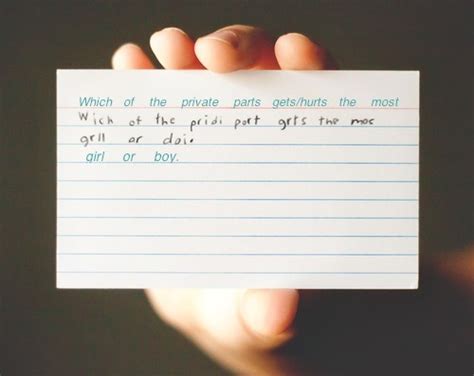 Which of the private parts gets/hurts the most
Wich of the pridi part grts the moc
grll or doi.
girl or boy.